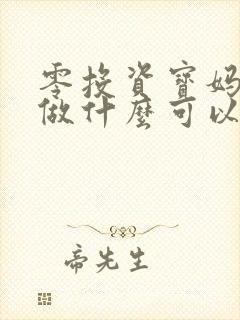 零投資寶媽
做什麼可以
帝先生